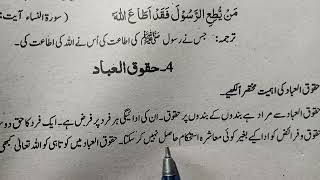 مَنْ يُّطِعِ الرَّسُوْلَ فَقَدْ اَطَاعَ اللّٰهَ (سورۃ النساء، آیت:
ترجمہ: جس نے رسول ﷺ کی اطاعت کی اُس نے اللہ کی اطاعت کی۔
4۔ حقوق العباد
حقوق العباد کی اہمیت مختصر لکھیے۔
حقوق العباد سے مراد ہے بندوں کے بندوں پر حقوق۔ ان کی ادائیگی ہر فرد پر فرض ہے۔ ایک فرد کا حق دوسـ
حقوق و فرائض کو ادا کیے بغیر کوئی معاشرہ استحکام حاصل نہیں کر سکتا۔ حقوق العباد میں کوتاہی کو اللہ تعالیٰ کبھی